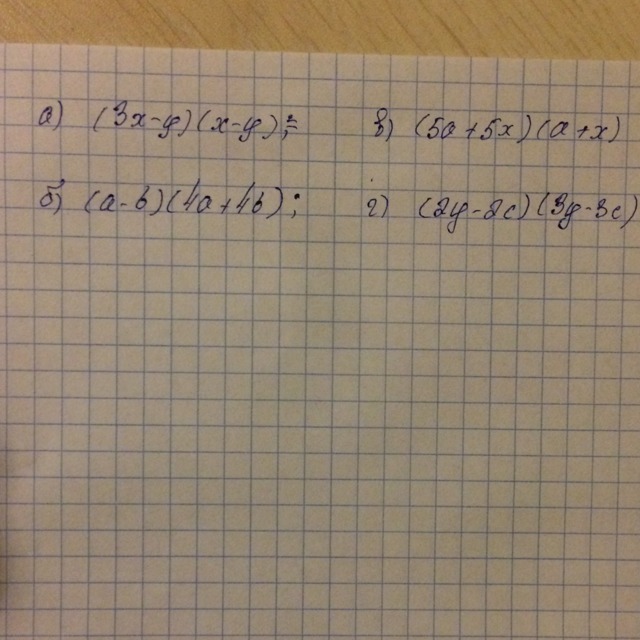 а) (3x-y)(x-y);= в) (5a+5x)(a+x)
б) (a-b)(4a+4b); г) (2y-2c)(3y-3c)